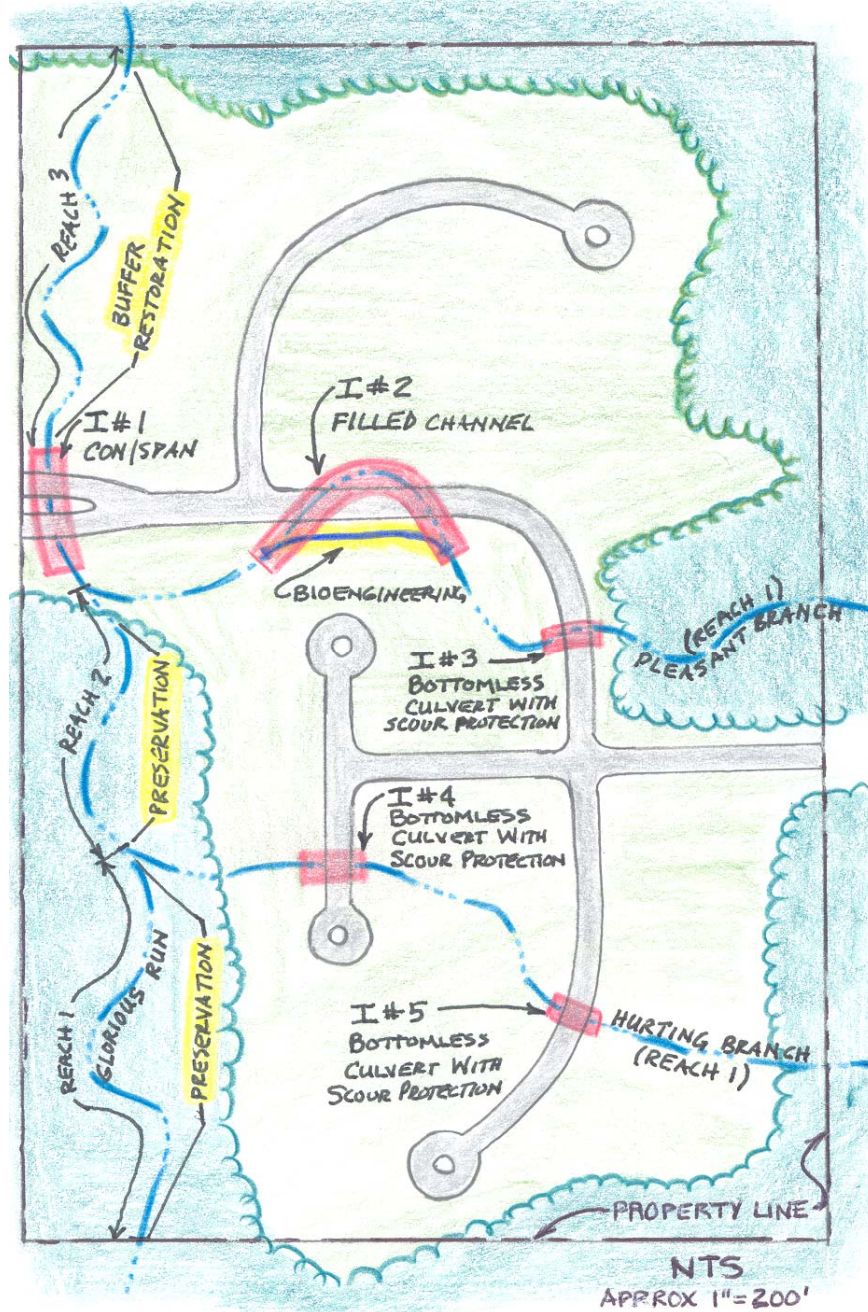 REACH 3
BUFFER
RESTORATION
I#1
CON/SPAN
I#2
FILLED CHANNEL
BIOENGINEERING
(REACH 1)
PLEASANT BRANCH
I#3
BOTTOMLESS
CULVERT WITH
SCOUR PROTECTION
REACH 2
PRESERVATION
I#4
BOTTOMLESS
CULVERT WITH
SCOUR PROTECTION
REACH 1
GLORIOUS RUN
PRESERVATION
I#5
BOTTOMLESS
CULVERT WITH
SCOUR PROTECTION
HURTING BRANCH
(REACH 1)
PROPERTY LINE
NTS
APPROX 1"=200'